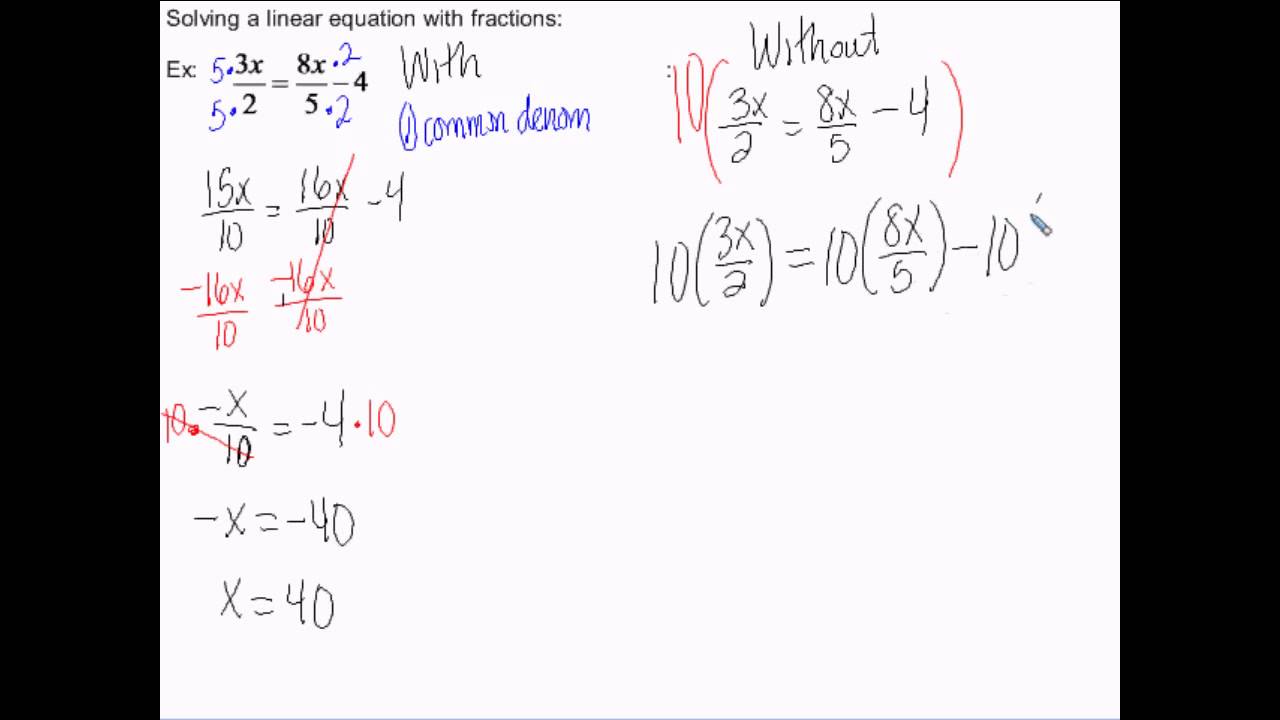 Solving a linear equation with fractions:
Ex: 5·3x/5·2 = 8x·2/5·2 − 4
With
① common denom
15x/10 = 16x/10 − 4
−16x/10 −16x/10
10· −x/10 = −4 · 10
−x = −40
x = 40
Without
: 10(3x/2 = 8x/5 − 4)
10(3x/2) = 10(8x/5) − 10